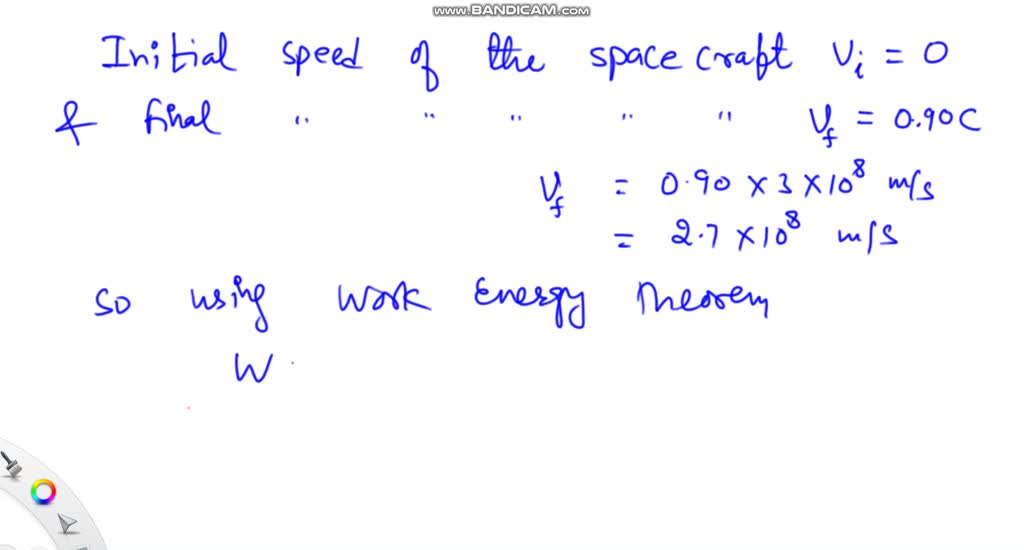 www.BANDICAM.com
Initial speed of the space craft Vi = 0
& final " " " " " Vf = 0.90C
Vf = 0.90 × 3 × 10⁸ m/s
= 2.7 × 10⁸ m/s
so using work Energy Theorem
W